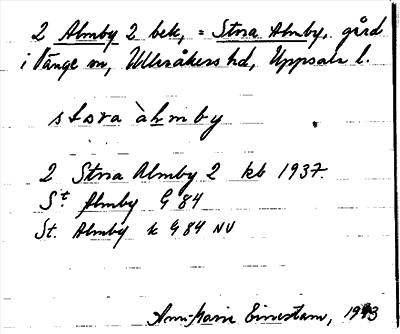 2 Almby 2 bek, = Stora Almby, gård
i Vänge sn, Ulleråkers hd, Uppsala l.
stora àlmby
2 Stora Almby 2 kb 1937.
St Almby G 84
St. Almby k G 84 NV
Ann-Marie Einestam, 1943